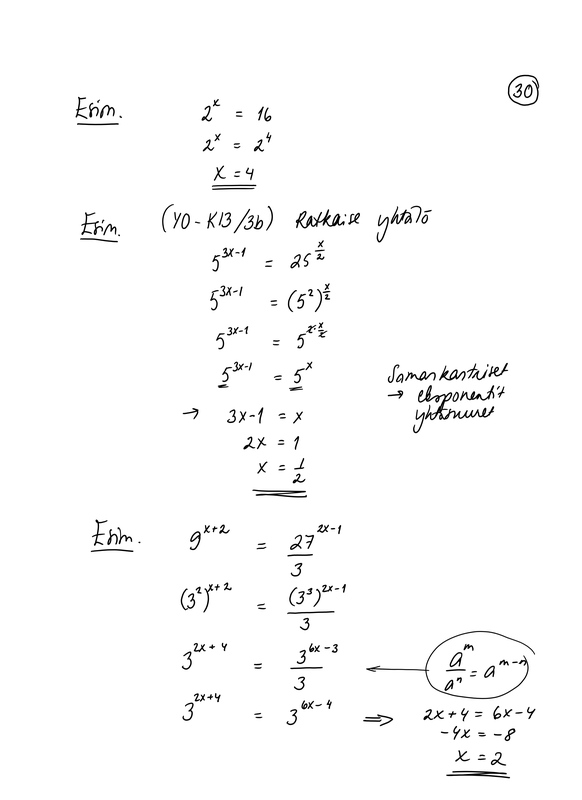 30
Esim. 2^x = 16
2^x = 2^4
x = 4
Esim. (YO - K13/3b) Ratkaise yhtälö
5^{3x-1} = 25^{x/2}
5^{3x-1} = (5^2)^{x/2}
5^{3x-1} = 5^{2·x/2}
5^{3x-1} = 5^x
Samankantaiset
→ eksponentit
yhtäsuuret
→ 3x-1 = x
2x = 1
x = 1/2
Esim. 9^{x+2} = 27^{2x-1}/3
(3^2)^{x+2} = (3^3)^{2x-1}/3
3^{2x+4} = 3^{6x-3}/3 ← a^m/a^n = a^{m-n}
3^{2x+4} = 3^{6x-4} ⇒ 2x+4 = 6x-4
-4x = -8
x = 2